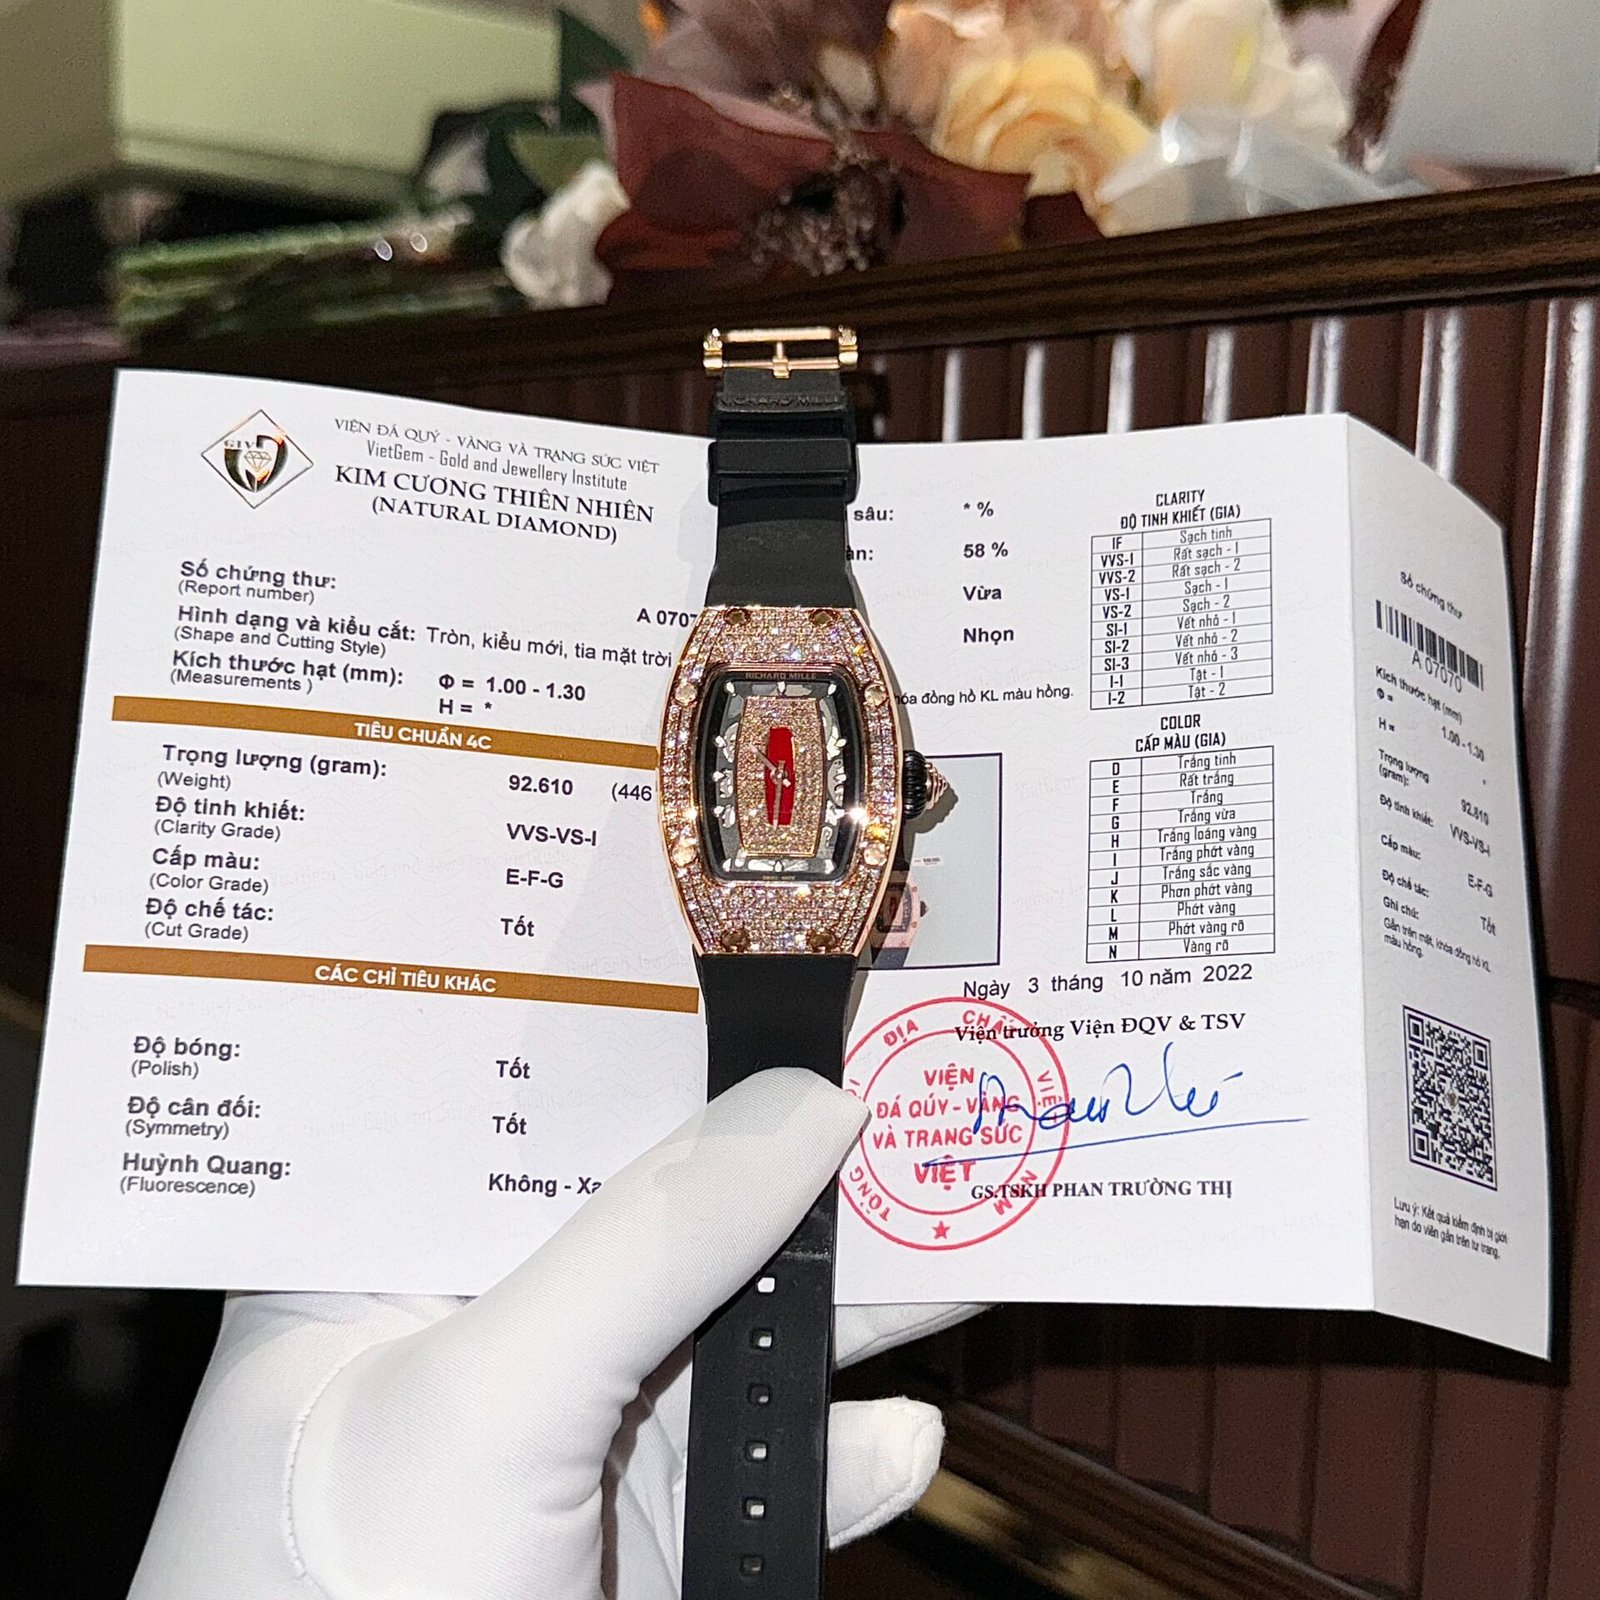 GIV
VIỆN ĐÁ QUÝ - VÀNG VÀ TRANG SỨC VIỆT
VietGem - Gold and Jewellery Institute
KIM CƯƠNG THIÊN NHIÊN
(NATURAL DIAMOND)
Số chứng thư:
(Report number)
A 0707
Hình dạng và kiểu cắt: Tròn, kiểu mới, tia mặt trời
(Shape and Cutting Style)
Kích thước hạt (mm):
(Measurements )
Φ = 1.00 - 1.30
H = *
TIÊU CHUẨN 4C
Trọng lượng (gram): 92.610 (446
(Weight)
Độ tinh khiết: VVS-VS-I
(Clarity Grade)
Cấp màu: E-F-G
(Color Grade)
Độ chế tác: Tốt
(Cut Grade)
CÁC CHỈ TIÊU KHÁC
Độ bóng: Tốt
(Polish)
Độ cân đối: Tốt
(Symmetry)
Huỳnh Quang: Không - Xa
(Fluorescence)
RICHARD MILLE
RICHARD MILLE
SWISS MADE
sâu: * %
àn: 58 %
Vừa
Nhọn
hóa đồng hồ KL màu hồng.
CLARITY
ĐỘ TINH KHIẾT (GIA)
IF Sạch tinh
VVS-1 Rất sạch - 1
VVS-2 Rất sạch - 2
VS-1 Sạch - 1
VS-2 Sạch - 2
SI-1 Vết nhỏ - 1
SI-2 Vết nhỏ - 2
SI-3 Vết nhỏ - 3
I-1 Tật - 1
I-2 Tật - 2
COLOR
CẤP MÀU (GIA)
D Trắng tinh
E Rất trắng
F Trắng
G Trắng vừa
H Trắng loáng vàng
I Trắng phớt vàng
J Trắng sắc vàng
K Phơn phớt vàng
L Phớt vàng
M Phớt vàng rõ
N Vàng rõ
Ngày 3 tháng 10 năm 2022
Viện trưởng Viện ĐQV & TSV
VIỆN
ĐÁ QUÝ - VÀNG
VÀ TRANG SỨC
VIỆT
TỔNG
ĐỊA CHẤ
VIỆ
NAM
GS.TSKH PHAN TRƯỜNG THỊ
Số chứng thư
A 07070
Kích thước hạt (mm)
Φ = 1.00 - 1.30
H = *
Trọng lượng
(gram): 92.610
Độ tinh khiết: VVS-VS-I
Cấp màu: E-F-G
Độ chế tác: Tốt
Ghi chú:
Gắn trên mặt, khóa đồng hồ KL
màu hồng.
Lưu ý: Kết quả kiểm định bị giới
hạn do viên gắn trên tư trang.